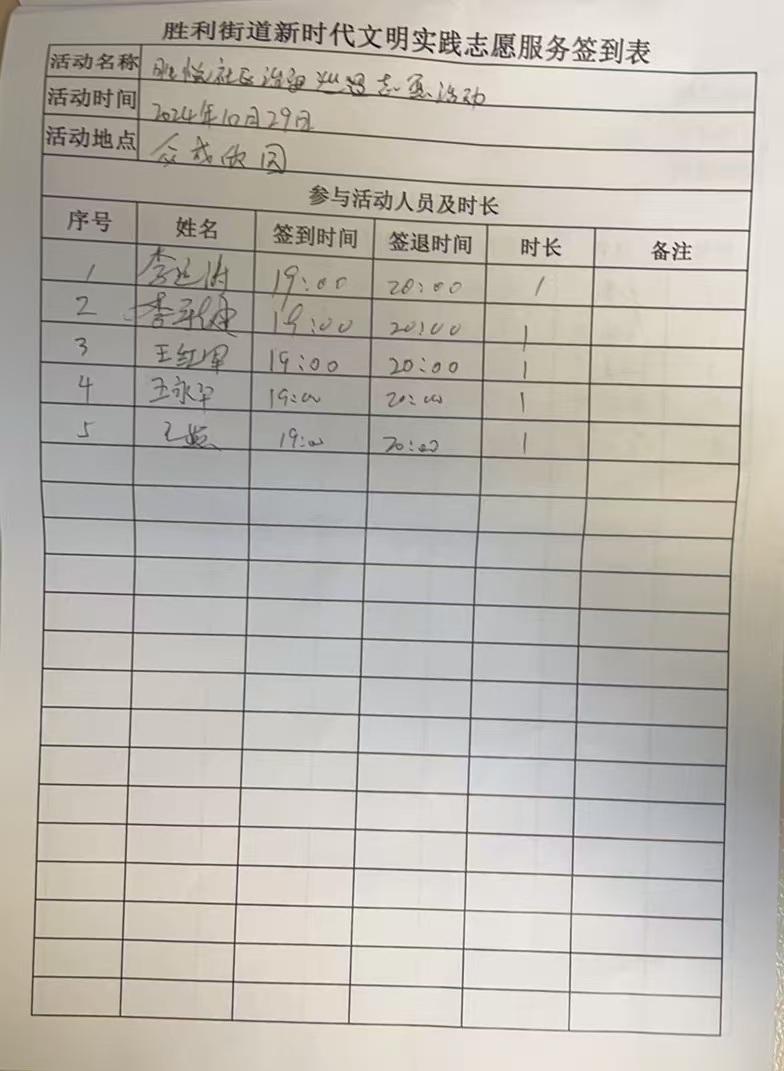 胜利街道新时代文明实践志愿服务签到表
活动名称 胜悦社区治理 志愿活动
活动时间 2024年10月29日
活动地点 众成 园
参与活动人员及时长
序号 姓名 签到时间 签退时间 时长 备注
1 李 19:00 20:00 1
2 李 19:00 20:00 1
3 王红军 19:00 20:00 1
4 王永军 19:00 20:00 1
5 王 19:00 20:00 1